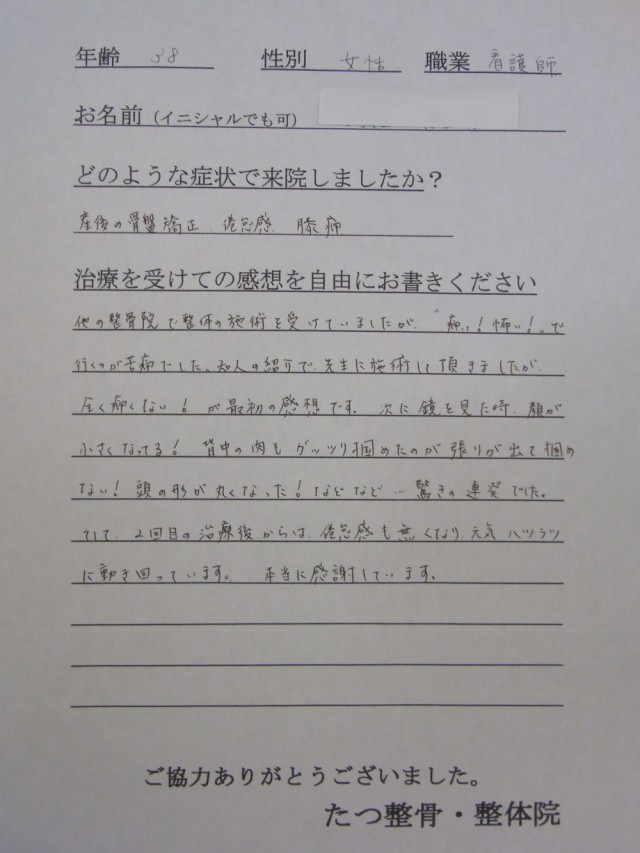 年齢 38 性別 女性 職業 看護師
お名前（イニシャルでも可）
どのような症状で来院しましたか？
産後の骨盤矯正 倦怠感 膝痛
治療を受けての感想を自由にお書きください
他の整骨院で整体の施術を受けていましたが、"痛い！怖い！"で
行くのが苦痛でした。知人の紹介で、先生に施術して頂きましたが、
全く痛くない！が最初の感想です。次に鏡を見た時、顔が
小さくなってる！背中の肉もガッツリ掴めたのが張りが出て掴め
ない！頭の形が丸くなった！などなど…驚きの連発でした。
そして、2回目の治療後からは、倦怠感も無くなり、元気ハツラツ
に動き回っています。 本当に感謝しています。
ご協力ありがとうございました。
たつ整骨・整体院